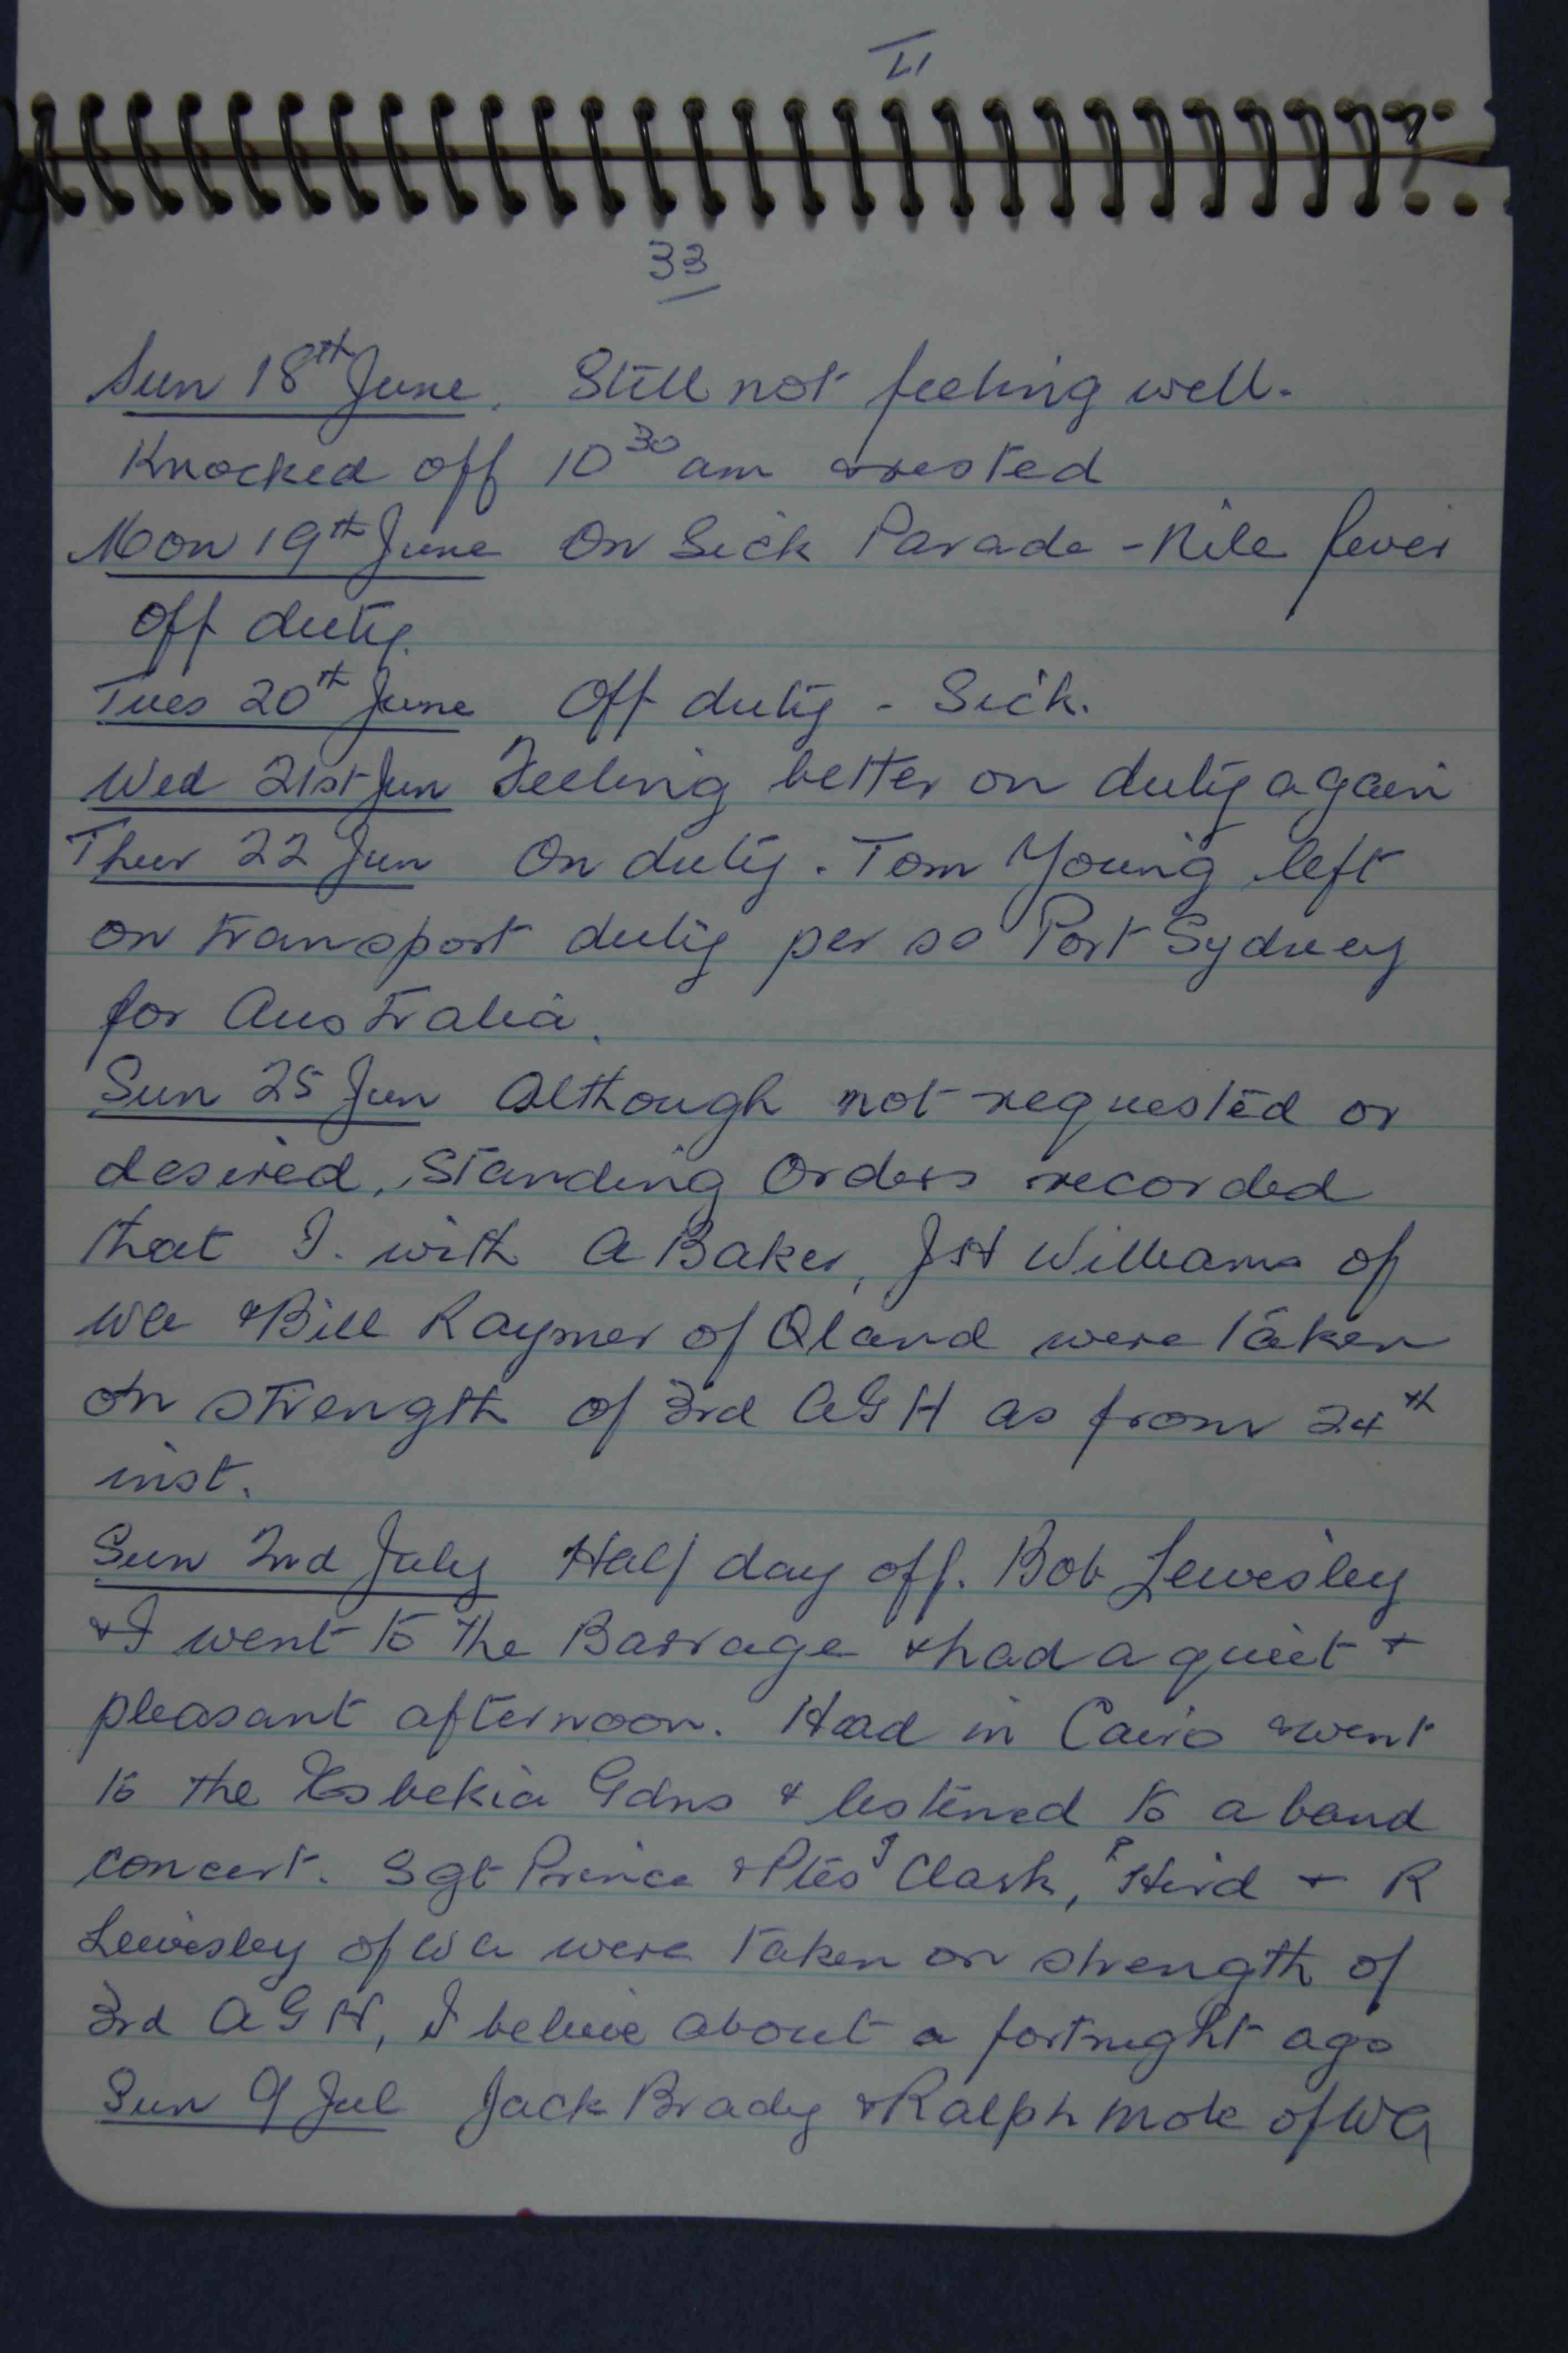 33
Sun 18th June. Still not feeling well.
Knocked off 10 30 am & rested
Mon 19th June On Sick Parade - Nile fever
off duty.
Tues 20th June Off duty - Sick.
Wed 21st Jun Feeling better on duty again
Thur 22 Jun On duty. Tom Young left
on transport duty per ss Port Sydney
for Australia.
Sun 25 Jun Although not requested or
desired, Standing Orders recorded
that I. with A Baker, JH Williams of
WA & Bill Raymer of Qland were taken
on strength of 3rd AGH as from 24th
inst.
Sun 2nd July Half day off. Bob Lewisley
& I went to the Barrage & had a quiet +
pleasant afternoon. Had in Cairo & went
to the Esbekia Gdns & listened to a band
concert. Sgt Prince & Ptes J Clark, P Hird + R
Lewisley of WA were taken on strength of
3rd AGH, I believe about a fortnight ago
Sun 9 Jul Jack Brady & Ralph Mole of WA